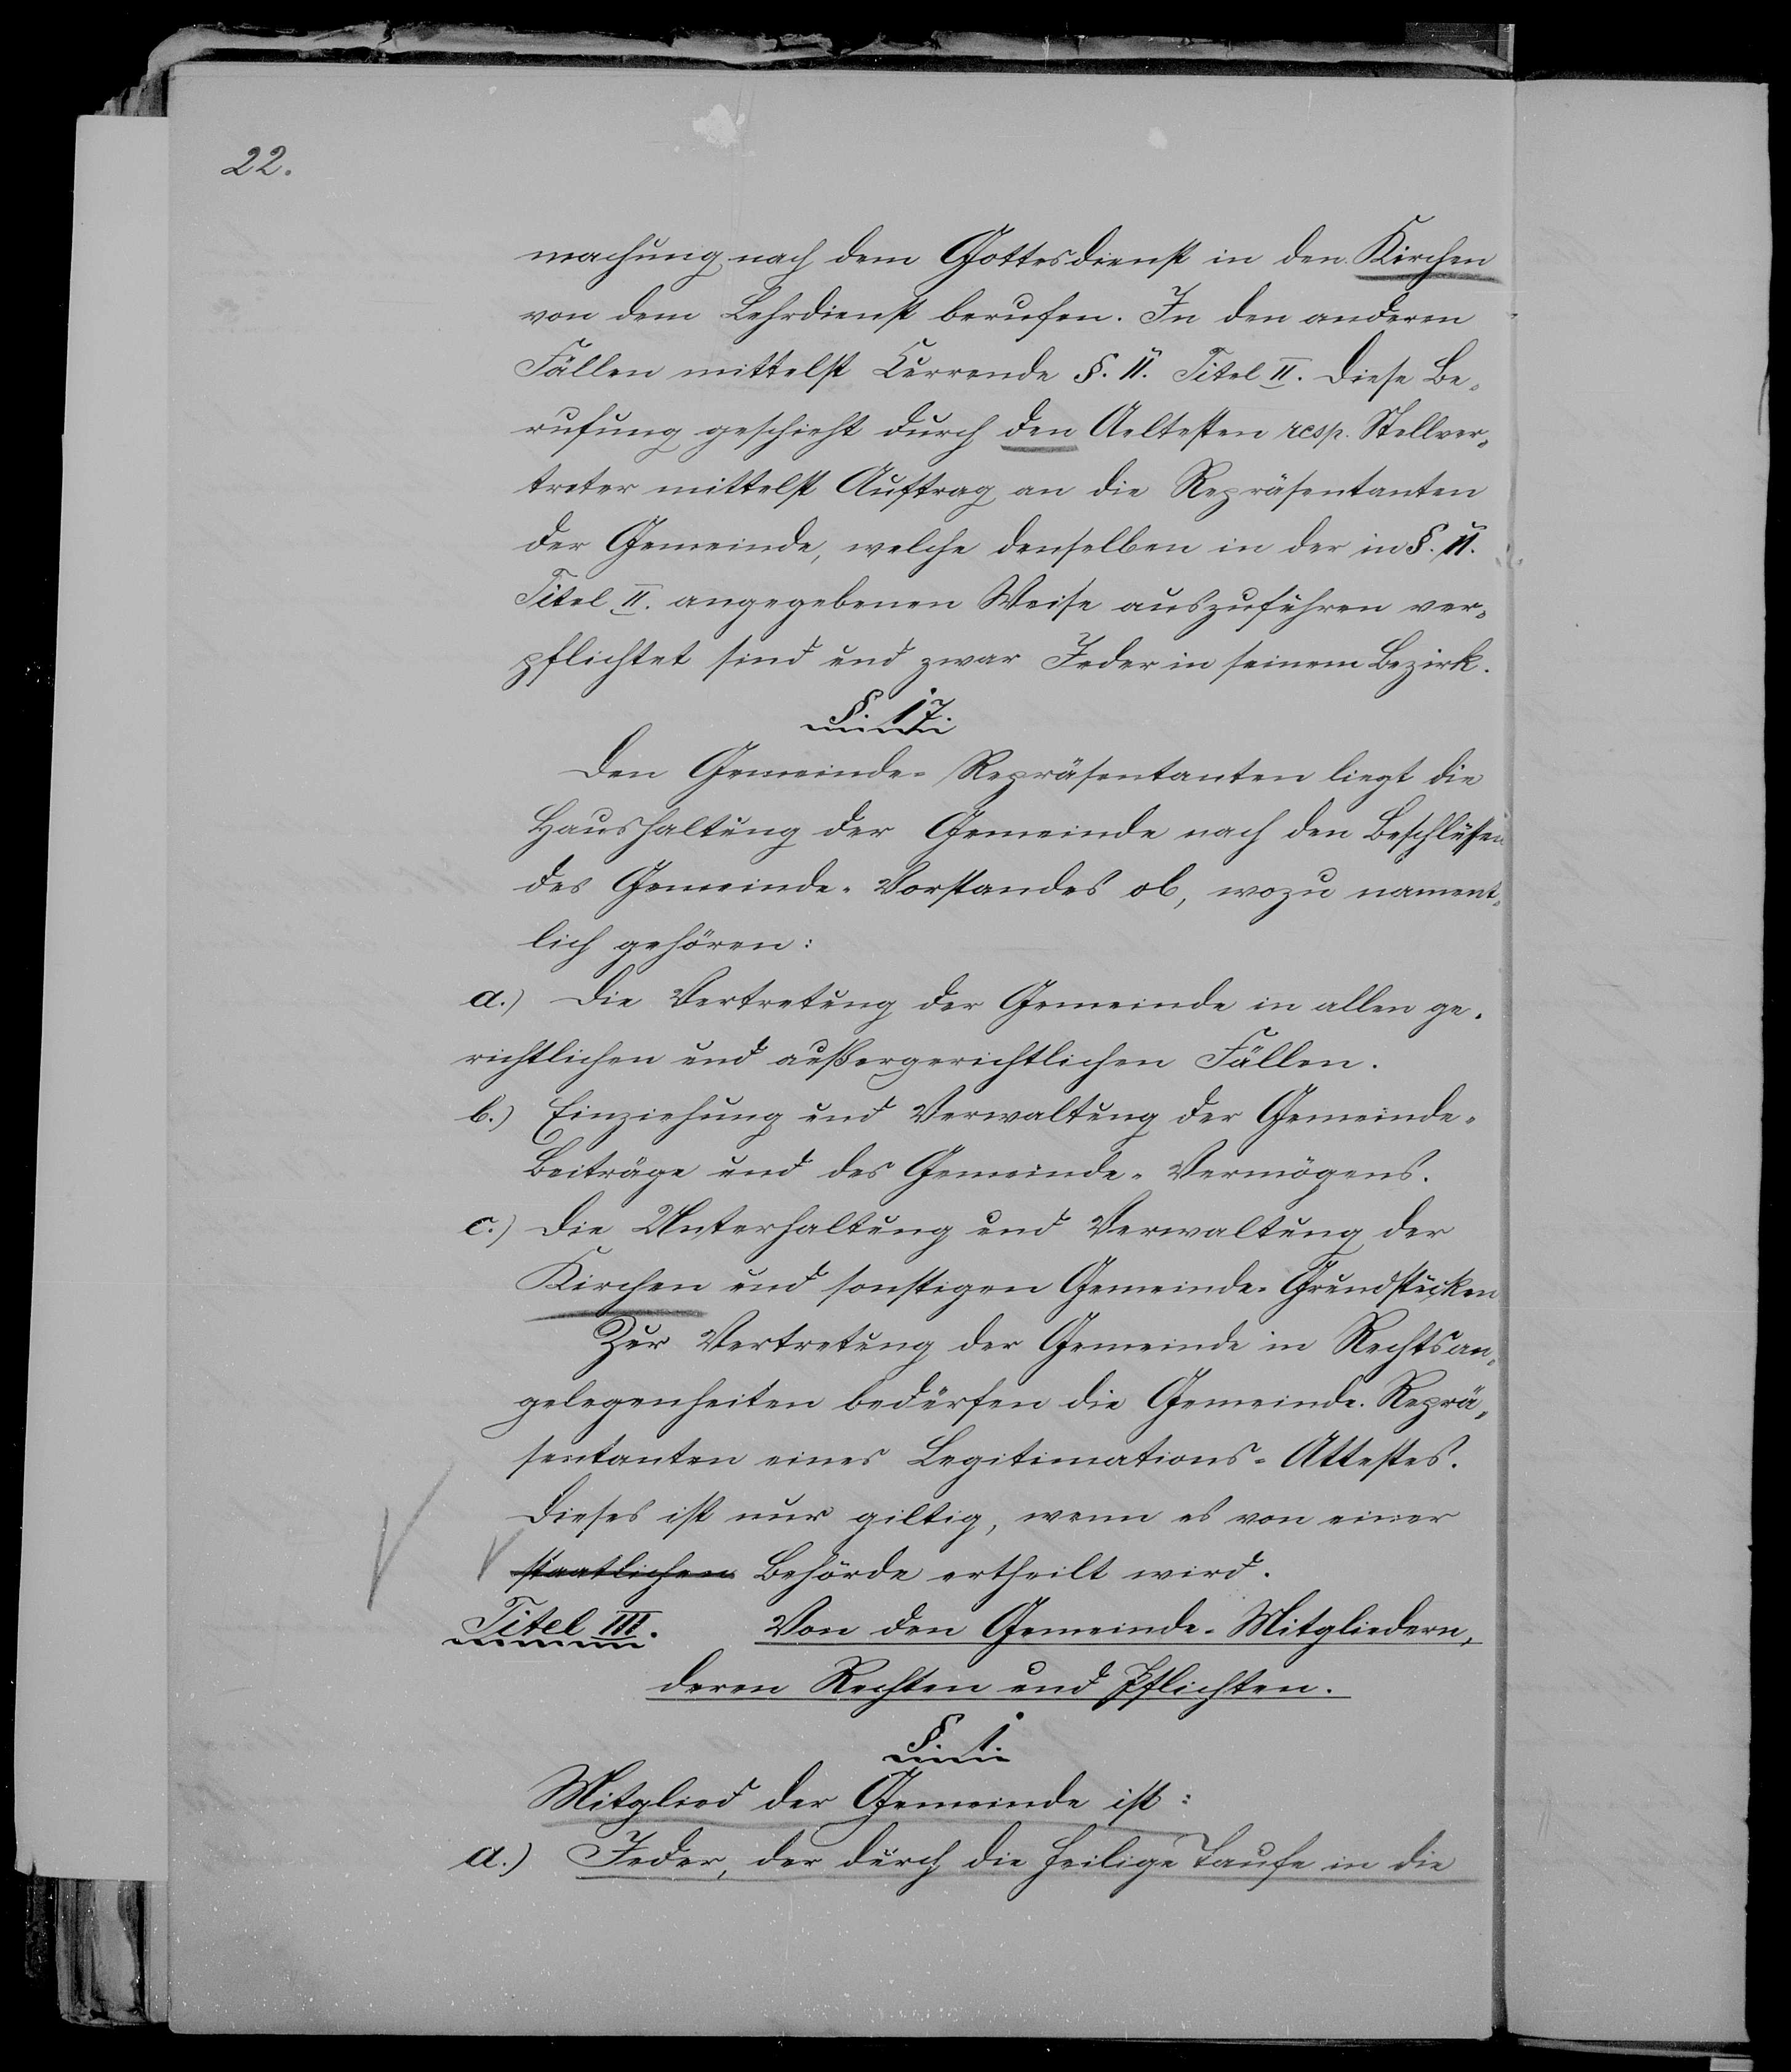 22.
machung nach dem Gottesdienst in den Kirchen
von dem Lehrdienst berufen. In den anderen
Fällen mittelst Currende §. 11. Titel II. Diese Be-
rufung geschieht durch den Aeltesten resp. Stellver-
treter mittelst Auftrag an die Repräsentanten
der Gemeinde, welche denselben in der in §. 11.
Titel II. angegebenen Weise auszuführen ver-
pflichtet sind und zwar Jeder in seinem Bezirk.
§. 17.
Den Gemeinde-Repräsentanten liegt die
Haushaltung der Gemeinde nach den Beschlüssen
des Gemeinde-Vorstandes ob, wozu nament-
lich gehören:
a.) Die Vertretung der Gemeinde in allen ge-
richtlichen und außergerichtlichen Fällen.
b.) Einziehung und Verwaltung der Gemeinde-
Beiträge und des Gemeinde-Vermögens.
c.) Die Unterhaltung und Verwaltung der
Kirchen und sonstigen Gemeinde-Grundstücken
Zur Vertretung der Gemeinde in Rechtsan-
gelegenheiten bedürfen die Gemeinde-Reprä-
sentanten eines Legitimations-Attestes.
Dieses ist nur giltig, wenn es von einer
staatlichen Behörde ertheilt wird.
Titel III. Von den Gemeinde-Mitgliedern,
deren Rechten und Pflichten.
§. 1.
Mitglied der Gemeinde ist:
a.) Jeder, der durch die heilige Taufe in die